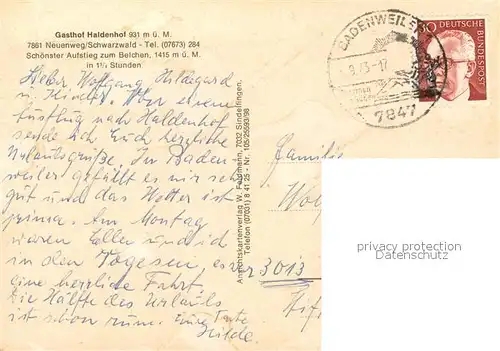 Gasthof Haldenhof 931 m ü. M.
7861 Neuenweg/Schwarzwald - Tel. (07673) 284
Schönster Aufstieg zum Belchen, 1415 m ü. M.
in 1½ Stunden
Lieber Wolfgang, Hildegard
u. Kinder. Von einem
Ausflug nach Haldenhof
sende ich Euch herzliche
Urlaubsgrüße. In Baden
weiler gefällt es mir sehr
gut und das Wetter ist
prima. Am Montag
waren Elli und ich
in den Vogesen es war
eine herrliche Fahrt.
Die Hälfte des Urlaubs
ist schon rum. Eure Tante
Hilde.
Ansichtskartenverlag W. Feldmann, 7032 Sindelfingen,
Telefon (07031) 8 41 25 - Nr. 105/25593/98
BADENWEILER
-17
7847
30 DEUTSCHE
BUNDESPOST
Familie
Wol
3013
privacy protection
Datenschutz